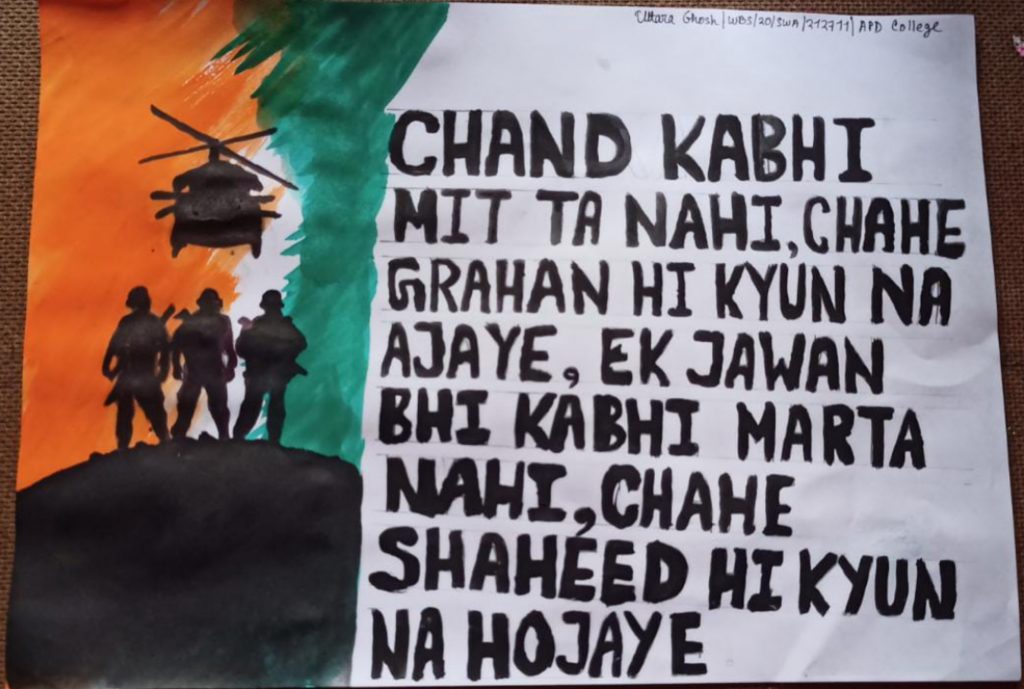 Uttara Ghosh | WBS/20/SWA/212711 | APD College
CHAND KABHI
MIT TA NAHI, CHAHE
GRAHAN HI KYUN NA
AJAYE, EK JAWAN
BHI KABHI MARTA
NAHI, CHAHE
SHAHEED HI KYUN
NA HOJAYE